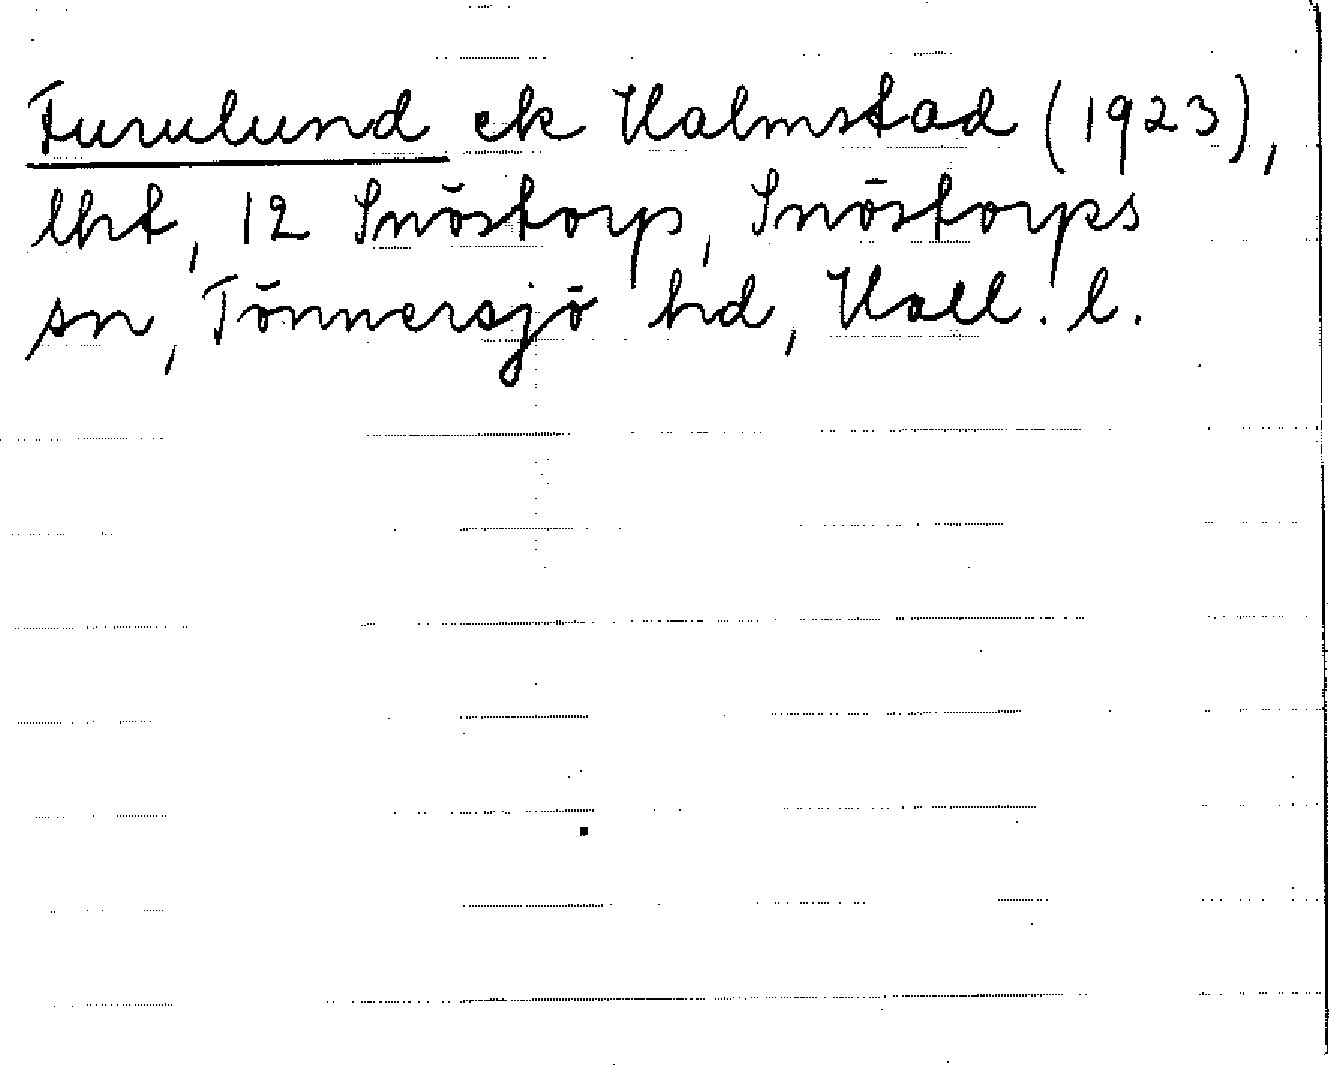 Furulund ek Halmstad (1923),
lht, 12 Snöstorp, Snöstorps
sn, Tönnersjö hd, Hall. l.